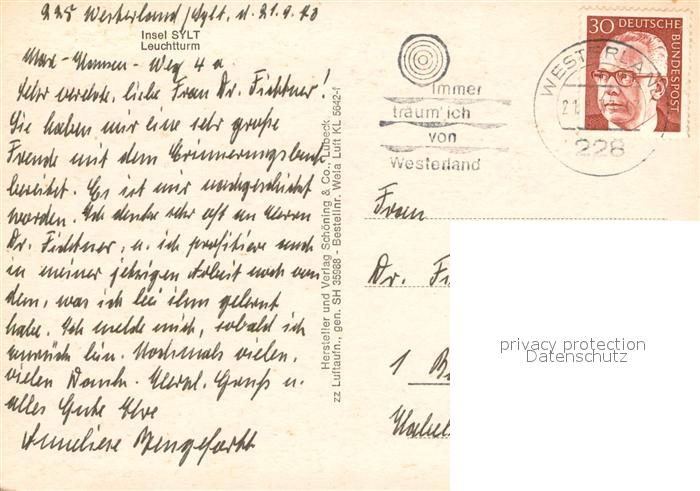 225 Westerland/Sylt, d. 21.9.73
Insel SYLT
Leuchtturm
Max-Hansen-Weg 4a
Sehr verehrte, liebe Frau Dr. Fichtner!
Sie haben mir eine sehr große
Freude mit dem Erinnerungsband
bereitet. Es ist mir nachgeschickt
worden. Ich denke sehr oft an Herrn
Dr. Fichtner, u. ich profitiere auch
in meiner jetzigen Arbeit noch von
dem, was ich bei ihm gelernt
habe. Ich melde mich, sobald ich
zurück bin. Nochmals vielen,
vielen Dank. Herzl. Gruß u.
alles Gute Ihre
Anneliese
Hersteller und Verlag Schöning & Co., Lübeck
zz Luftaufn., gen. SH 35988 - Bestellnr. Wela Luft KL 5642-f
immer
träum' ich
von
Westerland
30 DEUTSCHE BUNDESPOST
WESTERLAN
21.
228
Frau
Dr. Fi
1 B
privacy protection
Datenschutz